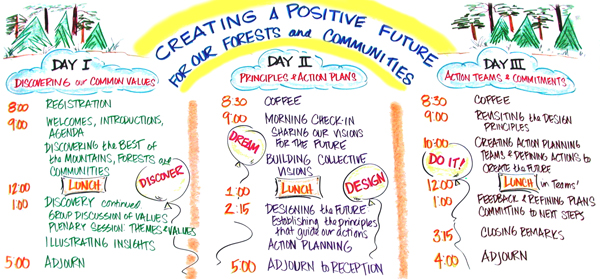 CREATING A POSITIVE FUTURE
FOR OUR FORESTS and COMMUNITIES
DAY I
DISCOVERING our COMMON VALUES
8:00 REGISTRATION
9:00 WELCOMES, INTRODUCTIONS,
AGENDA
DISCOVERING the BEST OF
the MOUNTAINS, FORESTS and
COMMUNITIES
12:00 LUNCH
DISCOVER
1:00 DISCOVERY continued
GROUP DISCUSSION of VALUES
PLENARY SESSION: THEMES & VALUES
ILLUSTRATING INSIGHTS
5:00 ADJOURN
DAY II
PRINCIPLES & ACTION PLANS
8:30 COFFEE
9:00 MORNING CHECK-IN
SHARING OUR VISIONS
FOR THE FUTURE
DREAM
BUILDING COLLECTIVE
VISIONS
1:00 LUNCH
DESIGN
2:15 DESIGNING the FUTURE
Establishing the principles
that guide our actions
ACTION PLANNING
5:00 ADJOURN to RECEPTION
DAY III
ACTION TEAMS & COMMITMENTS
8:30 COFFEE
9:00 REVISITING the DESIGN
PRINCIPLES
10:00 CREATING ACTION PLANNING
TEAMS & DEFINING ACTIONS to
CREATE the FUTURE
DO IT!
12:00 LUNCH in Teams!
1:00 FEEDBACK & REFINING PLANS
COMMITTING to NEXT STEPS
3:15 CLOSING REMARKS
4:00 ADJOURN